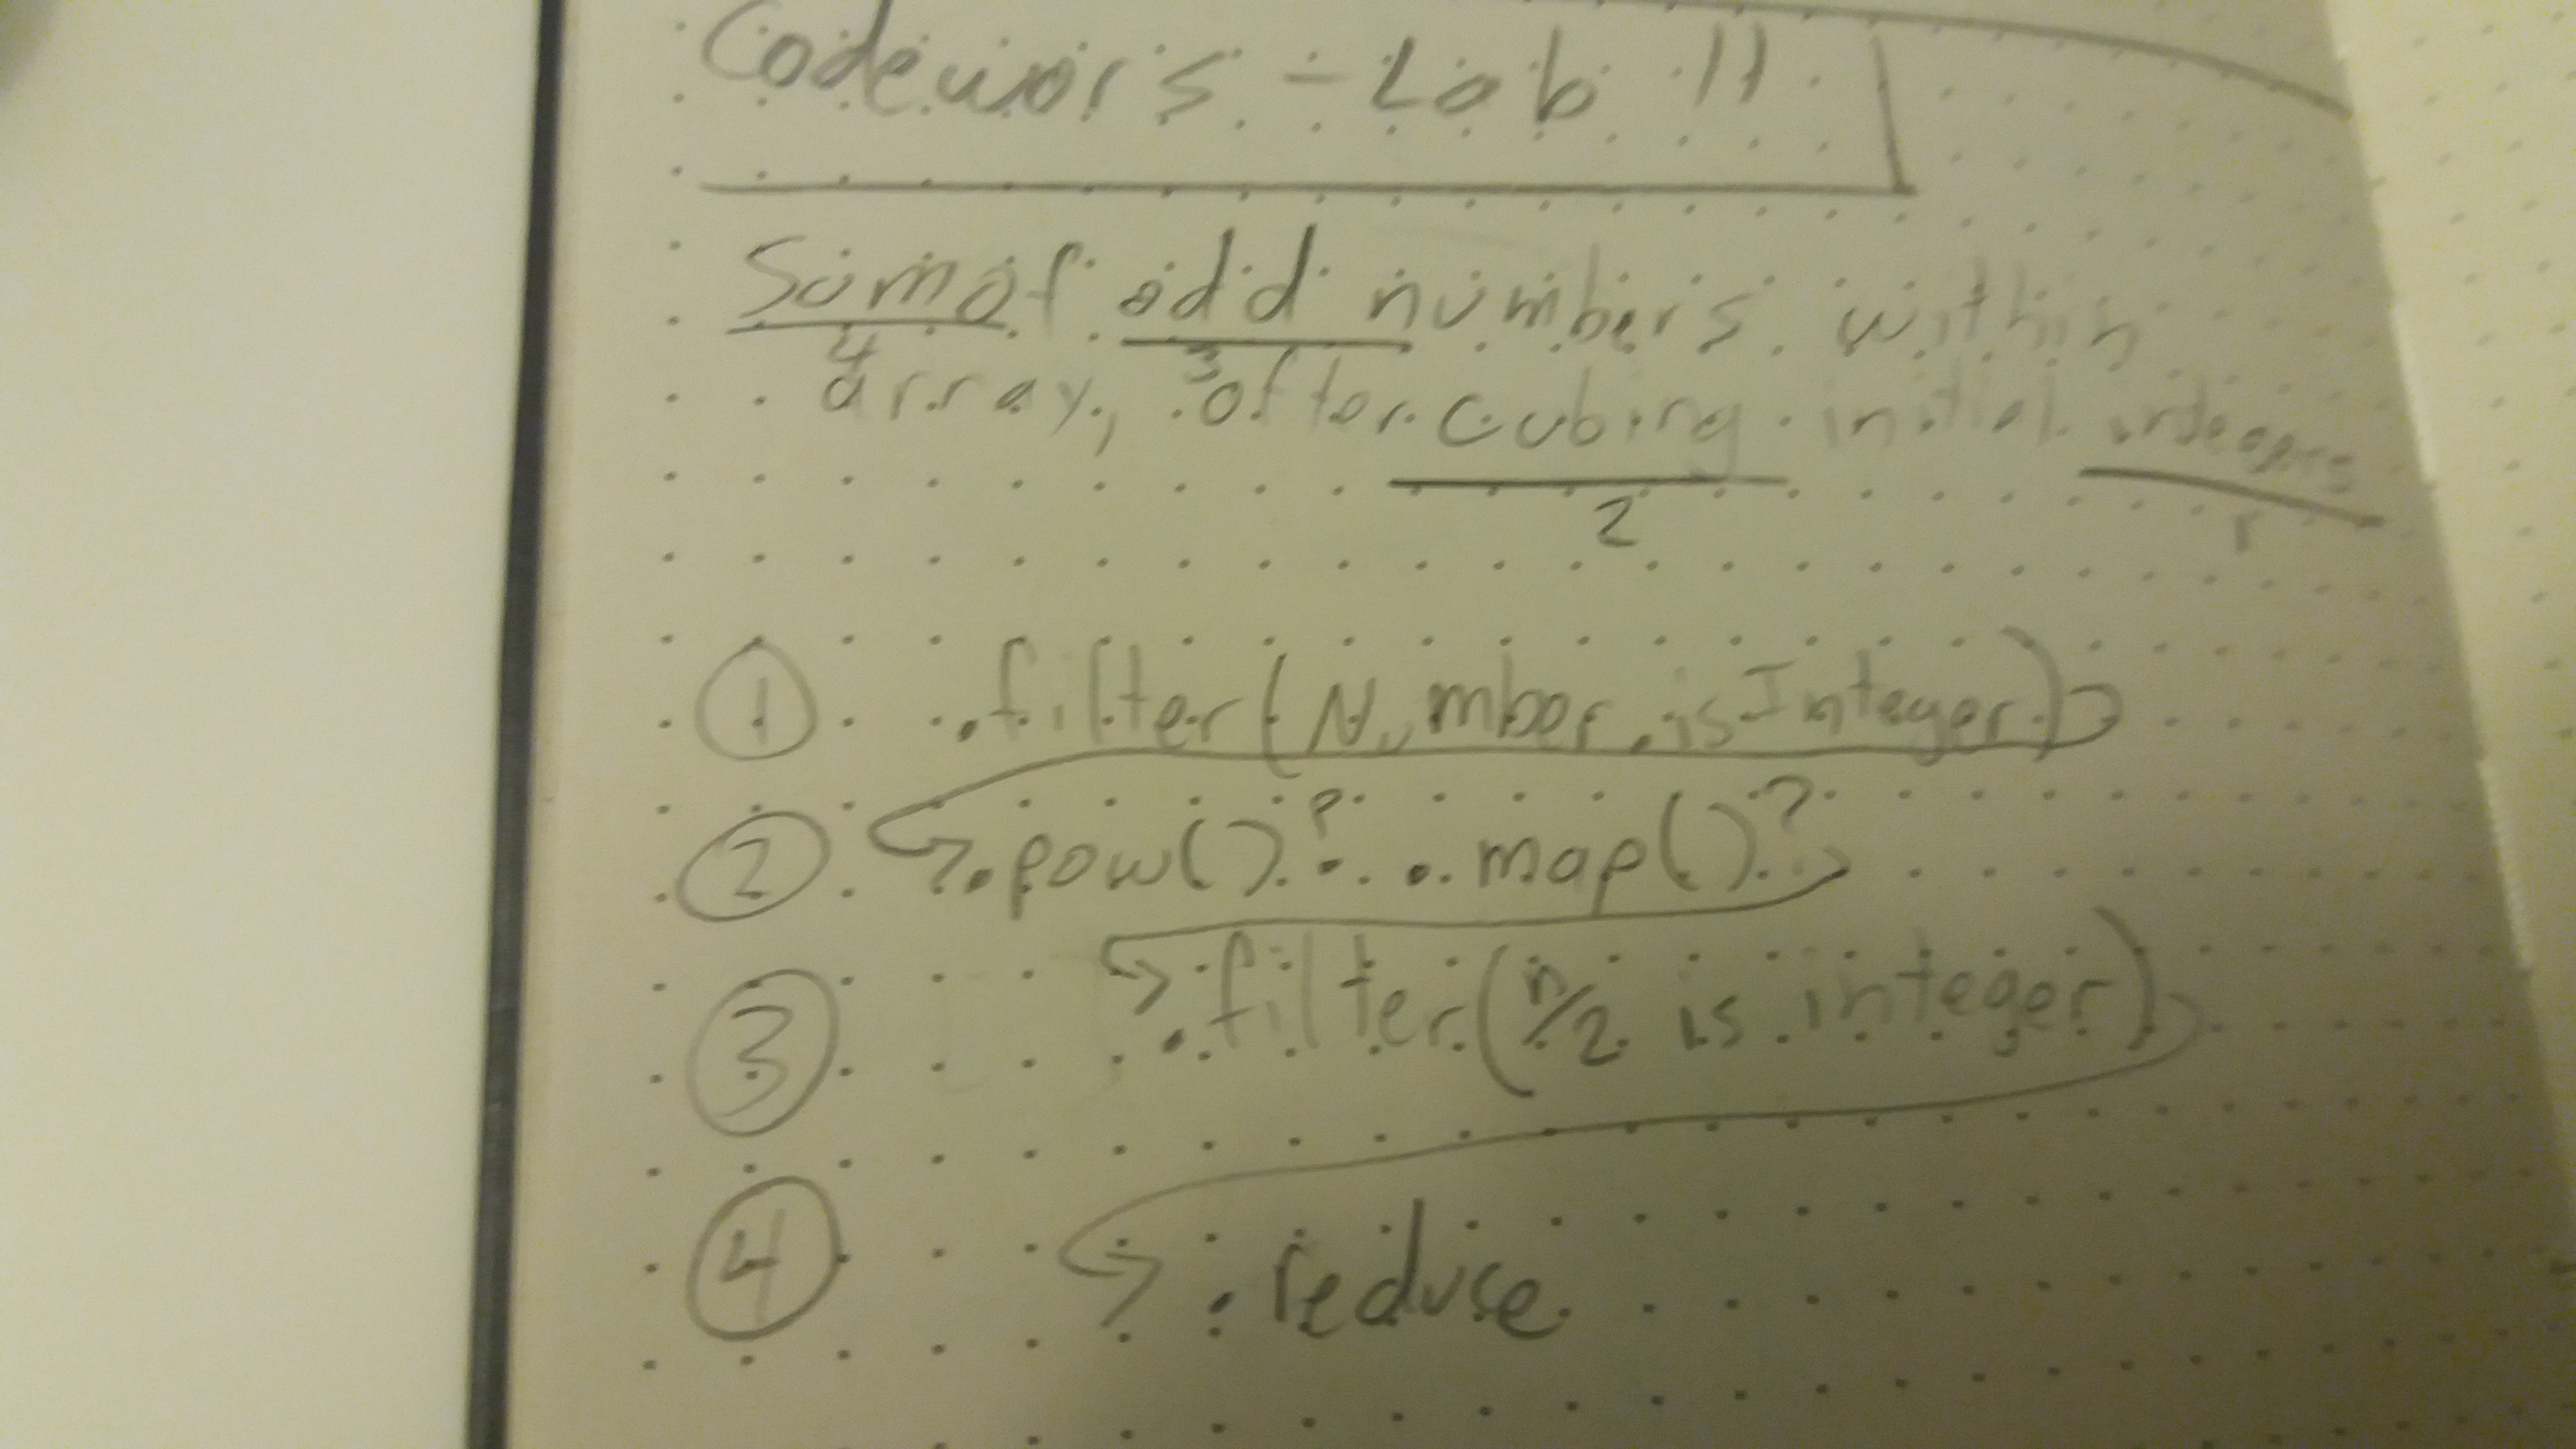 Codewars - Lab 11
Sum of odd numbers within
4 3
array, after cubing initial integers
2 1
① .filter(Number.isInteger)
② .pow()? .map()?
③ .filter(n/2 is integer)
④ .reduce